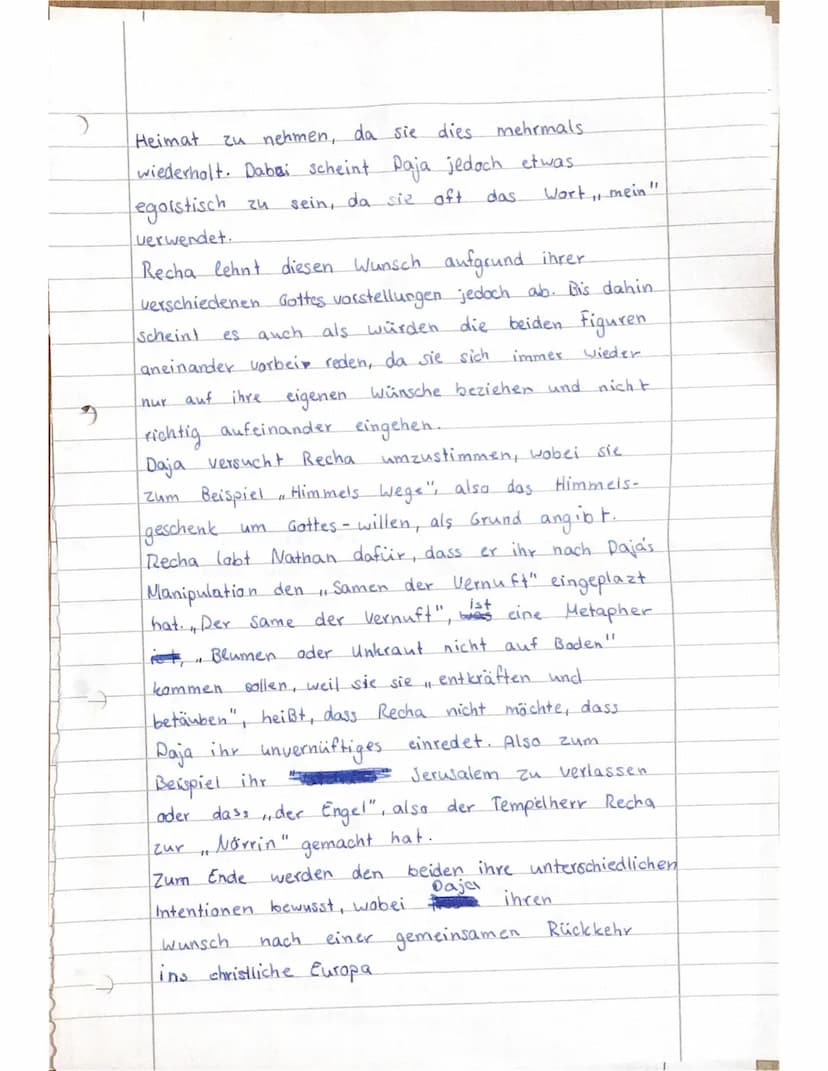 Heimat zu nehmen, da sie dies mehrmals
wiederholt. Dabai scheint Daja jedoch etwas
egoistisch zu sein, da sie oft das Wort „mein"
verwendet.
Recha lehnt diesen Wunsch aufgrund ihrer
verschiedenen Gottesvorstellungen jedoch ab. Bis dahin
scheint es auch als würden die beiden Figuren
aneinander vorbei reden, da sie sich immer wieder
nur auf ihre eigenen Wünsche beziehen und nicht
richtig aufeinander eingehen.
Daja versucht Recha umzustimmen, wobei sie
zum Beispiel „Himmels Wege", also das Himmels-
geschenk um Gottes-willen, als Grund angibt.
Recha lobt Nathan dafür, dass er ihr nach Daja's
Manipulation den „Samen der Vernuft" eingeplazt
hat. „Der Same der Vernuft", ist eine Metapher
„Blumen oder Unkraut nicht auf Boden"
kommen sollen, weil sie sie „entkräften und
betäuben", heißt, dass Recha nicht möchte, dass
Daja ihr unvernüftiges einredet. Also zum
Beispiel ihr Jerusalem zu verlassen
oder dass „der Engel", also der Tempelherr Recha
zur „Närrin" gemacht hat.
Zum Ende werden den beiden ihre unterschiedlichen
Intentionen bewusst, wobei Daja ihren
Wunsch nach einer gemeinsamen Rückkehr
ins christliche Europa